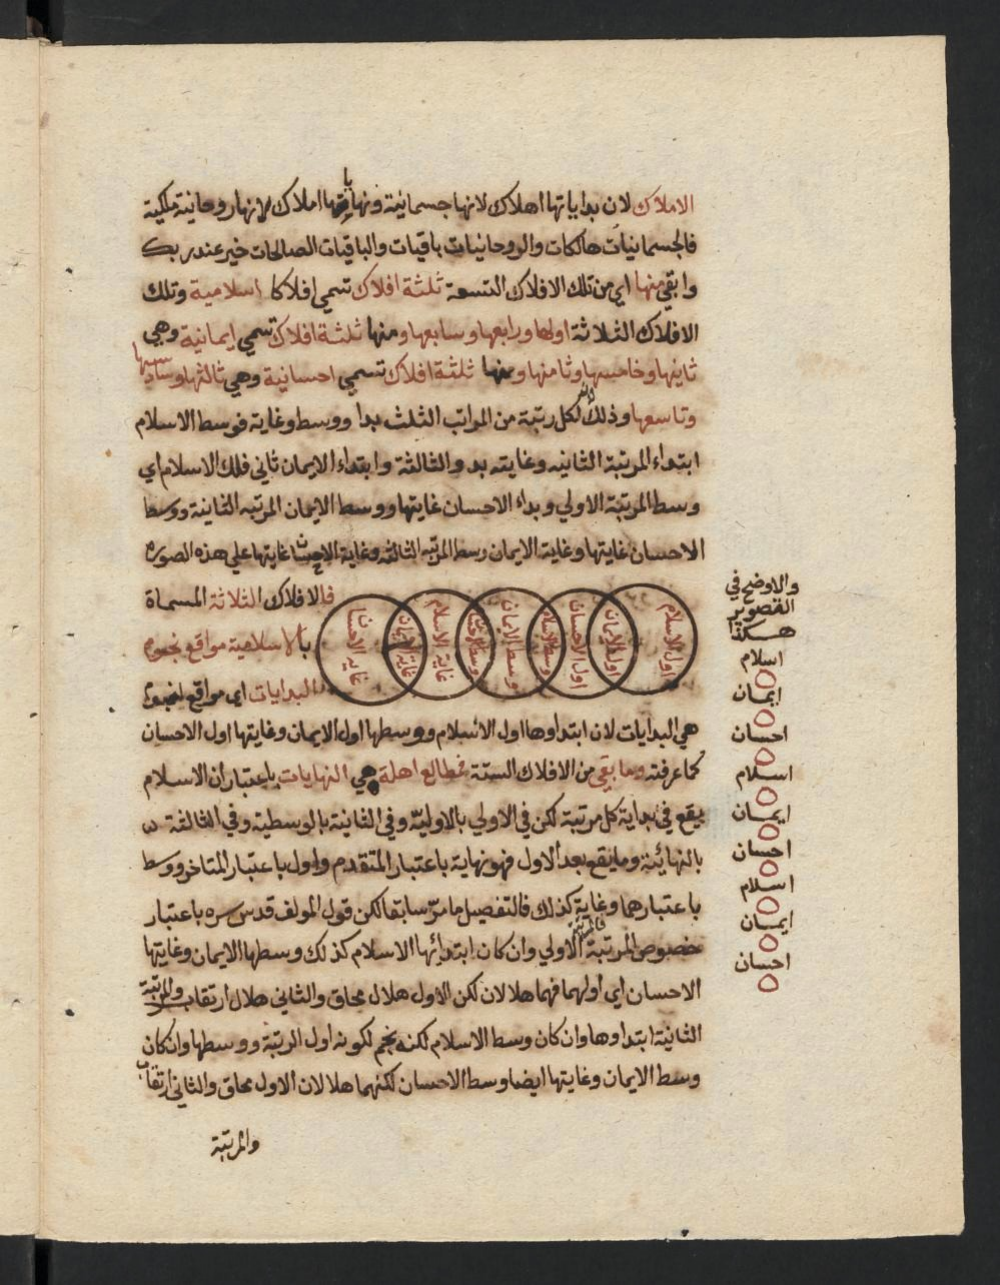 الاملاك لان بداياتها اهلاك لانها جسمانية ونهاياتها املاك لانها روحانية ملكية
فالجسمانيات هالكات والروحانيات باقيات والباقيات الصالحات خير عند ربك
وابقي منها اي من تلك الافلاك التسعة ثلثة افلاك تسمي افلاكا اسلامية وتلك
الافلاك الثلاثة اولها ورابعها وسابعها ومنها ثلثة افلاك تسمي إيمانية وهي
ثانيها وخامسها وثامنها ومنها ثلثة افلاك تسمي احسانية وهي ثالثها وسادسها
وتاسعها وذلك لان لكل رتبة من المراتب الثلث بدا ووسط وغاية فوسط الاسلام
ابتداء المرتبة الثانيه وغايته بدو الثالثة وابتداء الايمان ثاني فلك الاسلام اي
وسط المرتبة الاولي وبداء الاحسان غايتها ووسط الايمان المرتبه الثانية ووسط
الاحسان غايتها وغاية الايمان وسط المرتبه الثالثه وغاية الاحسان غايتها علي هذه الصوره
فالافلاك الثلاثة المسماة
بالاسلامية مواقع نجوم
البدايات اي مواقع
اول الاسلام
اول الايمان
اول الاحسان
وسط الاسلام
وسط الايمان
وسط الاحسان
غاية الاسلام
غاية الايمان
غاية الاحسان
هي البدايات لان ابتداوها اول الاسلام ووسطها اول الايمان وغايتها اول الاحسان
كما عرفته وما بقي من الافلاك الستة فمطالع اهلة هي النهايات باعتبار ان الاسلام
يقع في بداية كل مرتبة لكن في الاولي بالاولية وفي الثانية بالوسطية وفي الثالثة
بالنهائية وما يقع بعد الاول فهو نهاية باعتبار المتقدم واول باعتبار المتاخر ووسط
باعتبارهما وغاية كذلك فالتفصيل ما مر سابقا لكن قول المولف قدس سره باعتبار
خصوص المرتبة الاولي وان كان ابتدائها الاسلام كذلك وسطها الايمان وغايتها
الاحسان اي اولهما فهما هلالان لكن الاول هلال محاق والثاني هلال ارتقاب والمرتبة
الثانية ابتداوها وان كان وسط الاسلام لكنه نجم لكونه اول الرتبة ووسطها وان كان
وسط الايمان وغايتها ايضا وسط الاحسان لكنهما هلالان الاول محاق والثاني ارتقاب
والمرتبة
والاوضح في
التصوير
هكذا
اسلام
ايمان
احسان
اسلام
ايمان
احسان
اسلام
ايمان
احسان